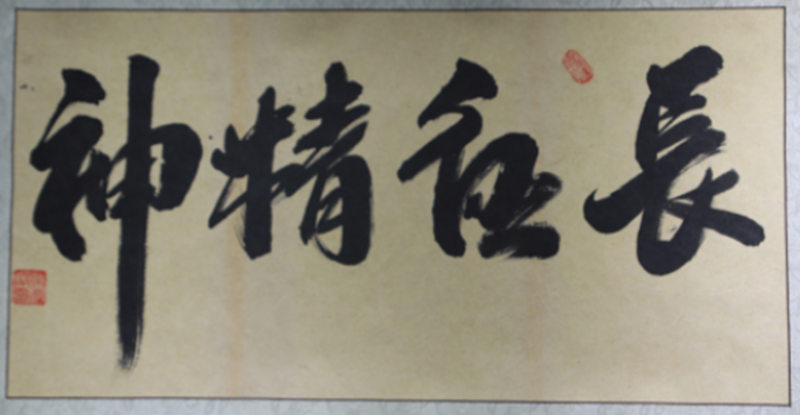 長征精神